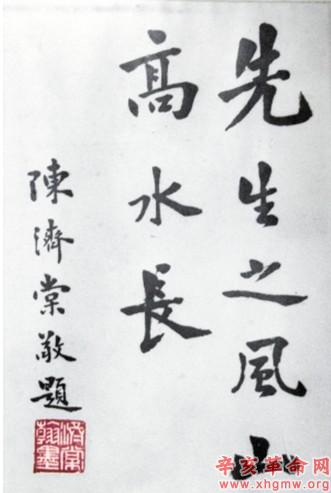 先生之風山
高水長
陳濟棠敬題
濟棠翰墨
辛亥革命网
www.xhgmw.org